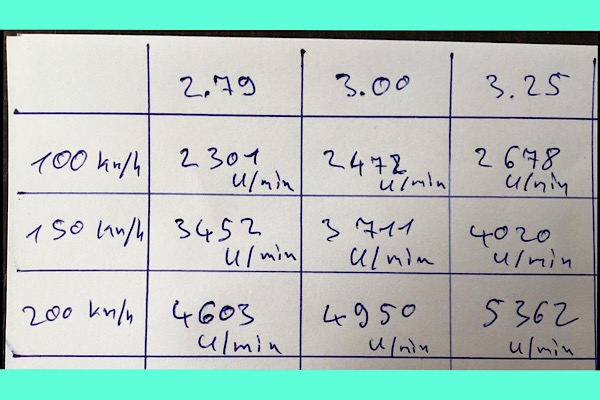 2.79 3.00 3.25
100 km/h 2301 U/min 2472 U/min 2678 U/min
150 km/h 3452 U/min 3711 U/min 4020 U/min
200 km/h 4603 U/min 4950 U/min 5362 U/min